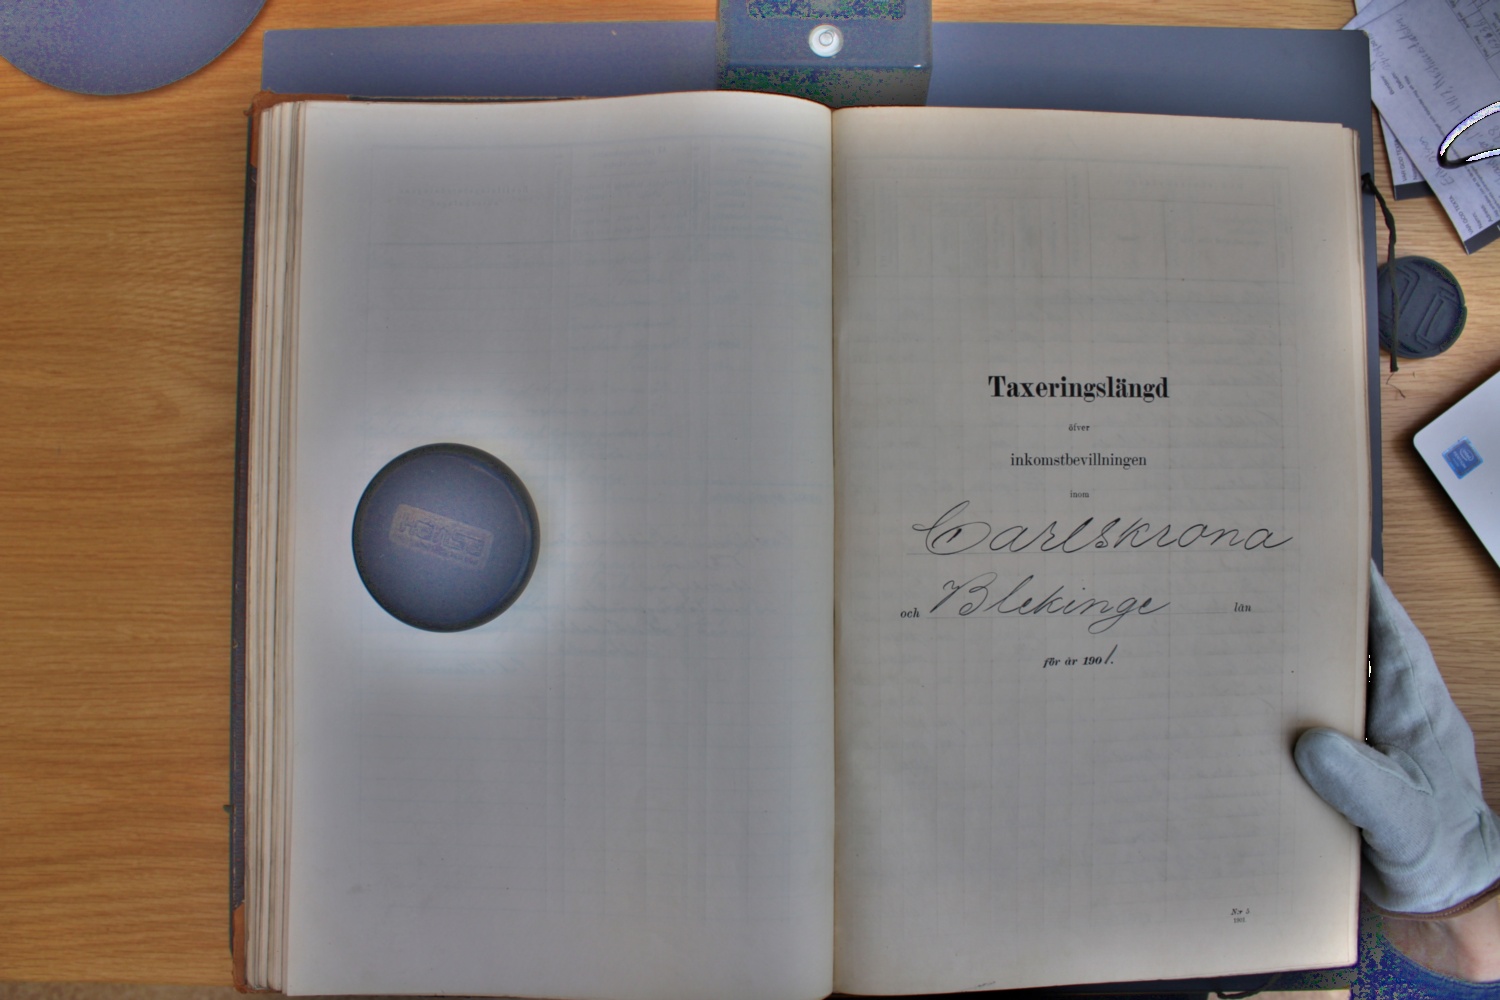 Taxeringslängd
öfver
inkomstbevillningen
inom
Carlskrona
och Blekinge län
för år 1901.
Nr 5
1901